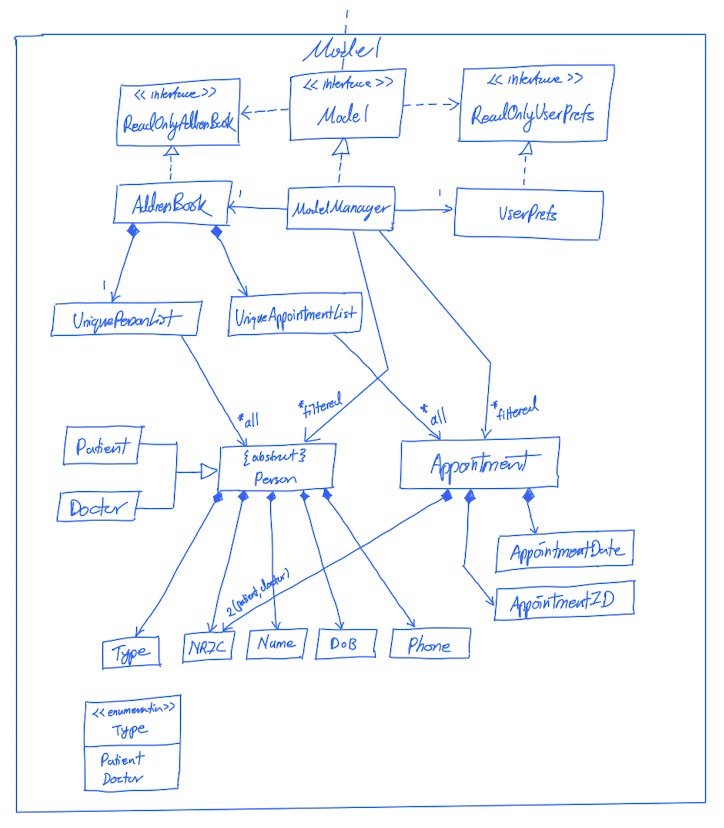 Model
<< interface >>
ReadOnlyAddressBook
<< interface >>
Model
<< interface >>
ReadOnlyUserPrefs
AddressBook
1
ModelManager
1
UserPrefs
1
UniquePersonList
UniqueAppointmentList
*all
*filtered
*all
*filtered
Patient
Doctor
{abstract}
Person
Appointment
AppointmentDate
AppointmentID
2 (patient, doctor)
Type
NRIC
Name
DoB
Phone
<<enumeration>>
Type
Patient
Doctor